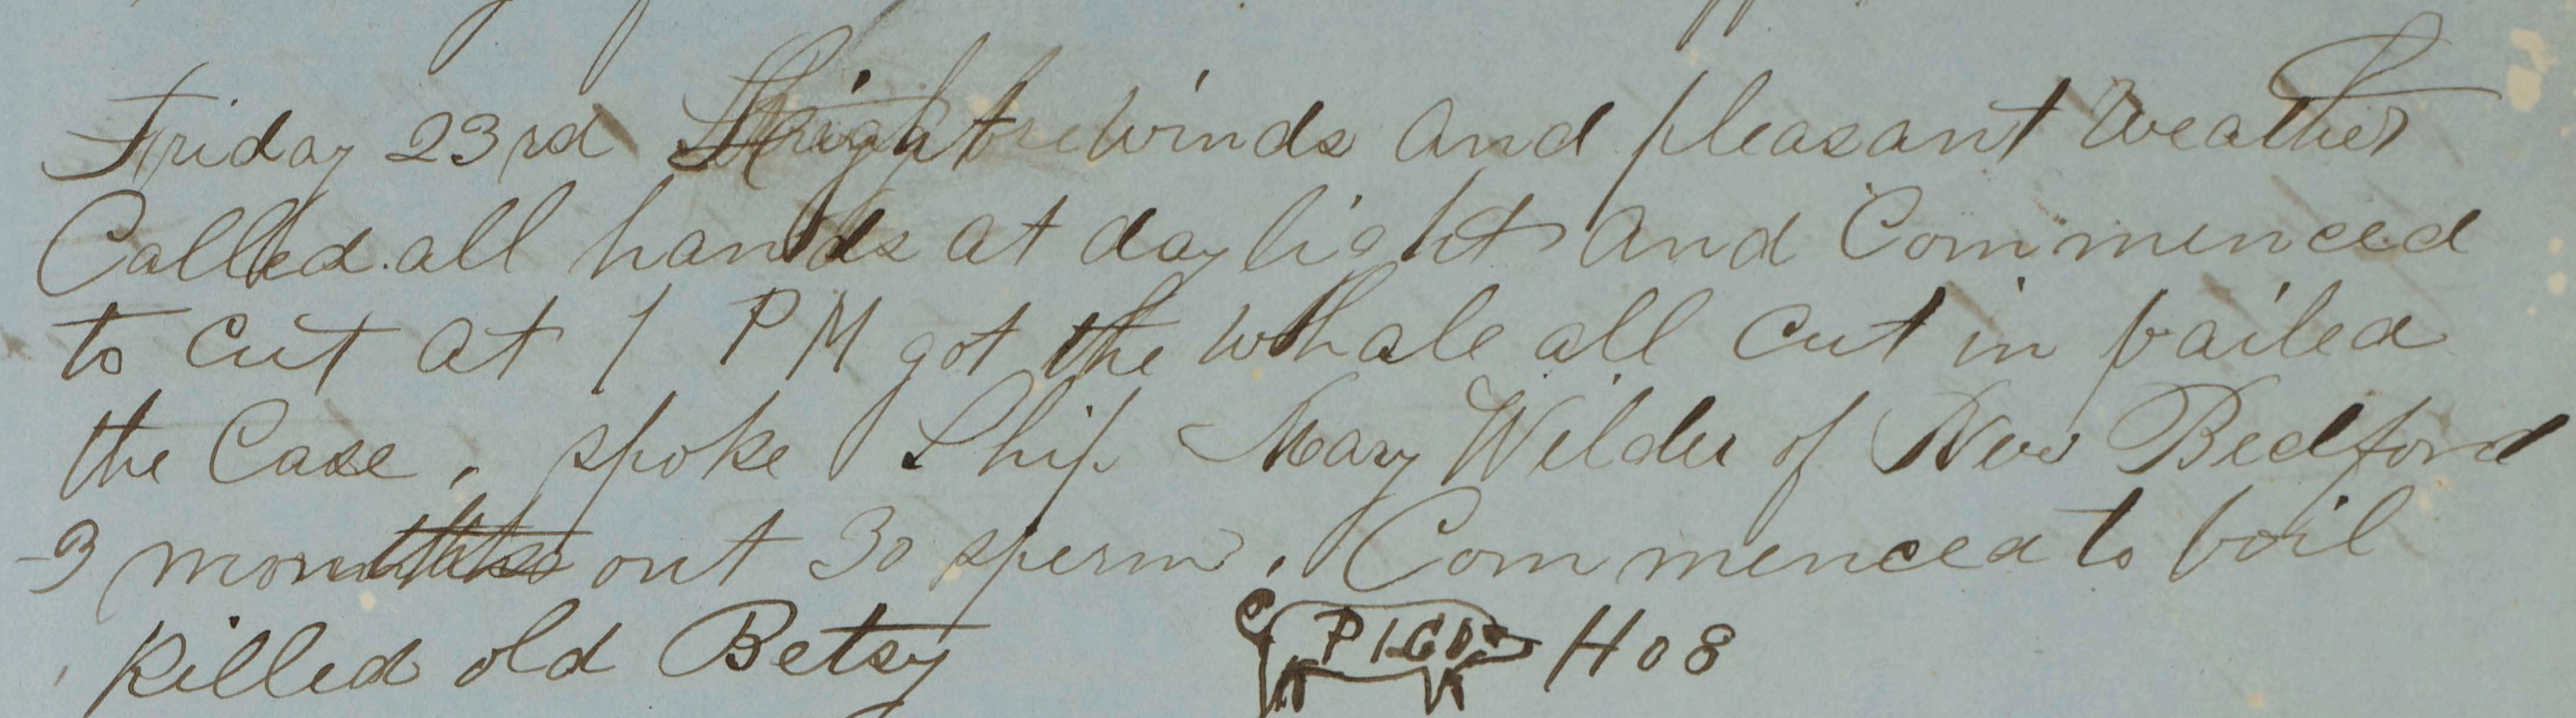 Friday 23rd Light winds and pleasant Weather
Called all hands at daylight and Commenced
to cut at 1 PM got the whale all cut in bailed
the Case, spoke Ship Mary Wilder of New Bedford
3 months out 30 sperm. Commenced to boil
Killed old Betsy PIG